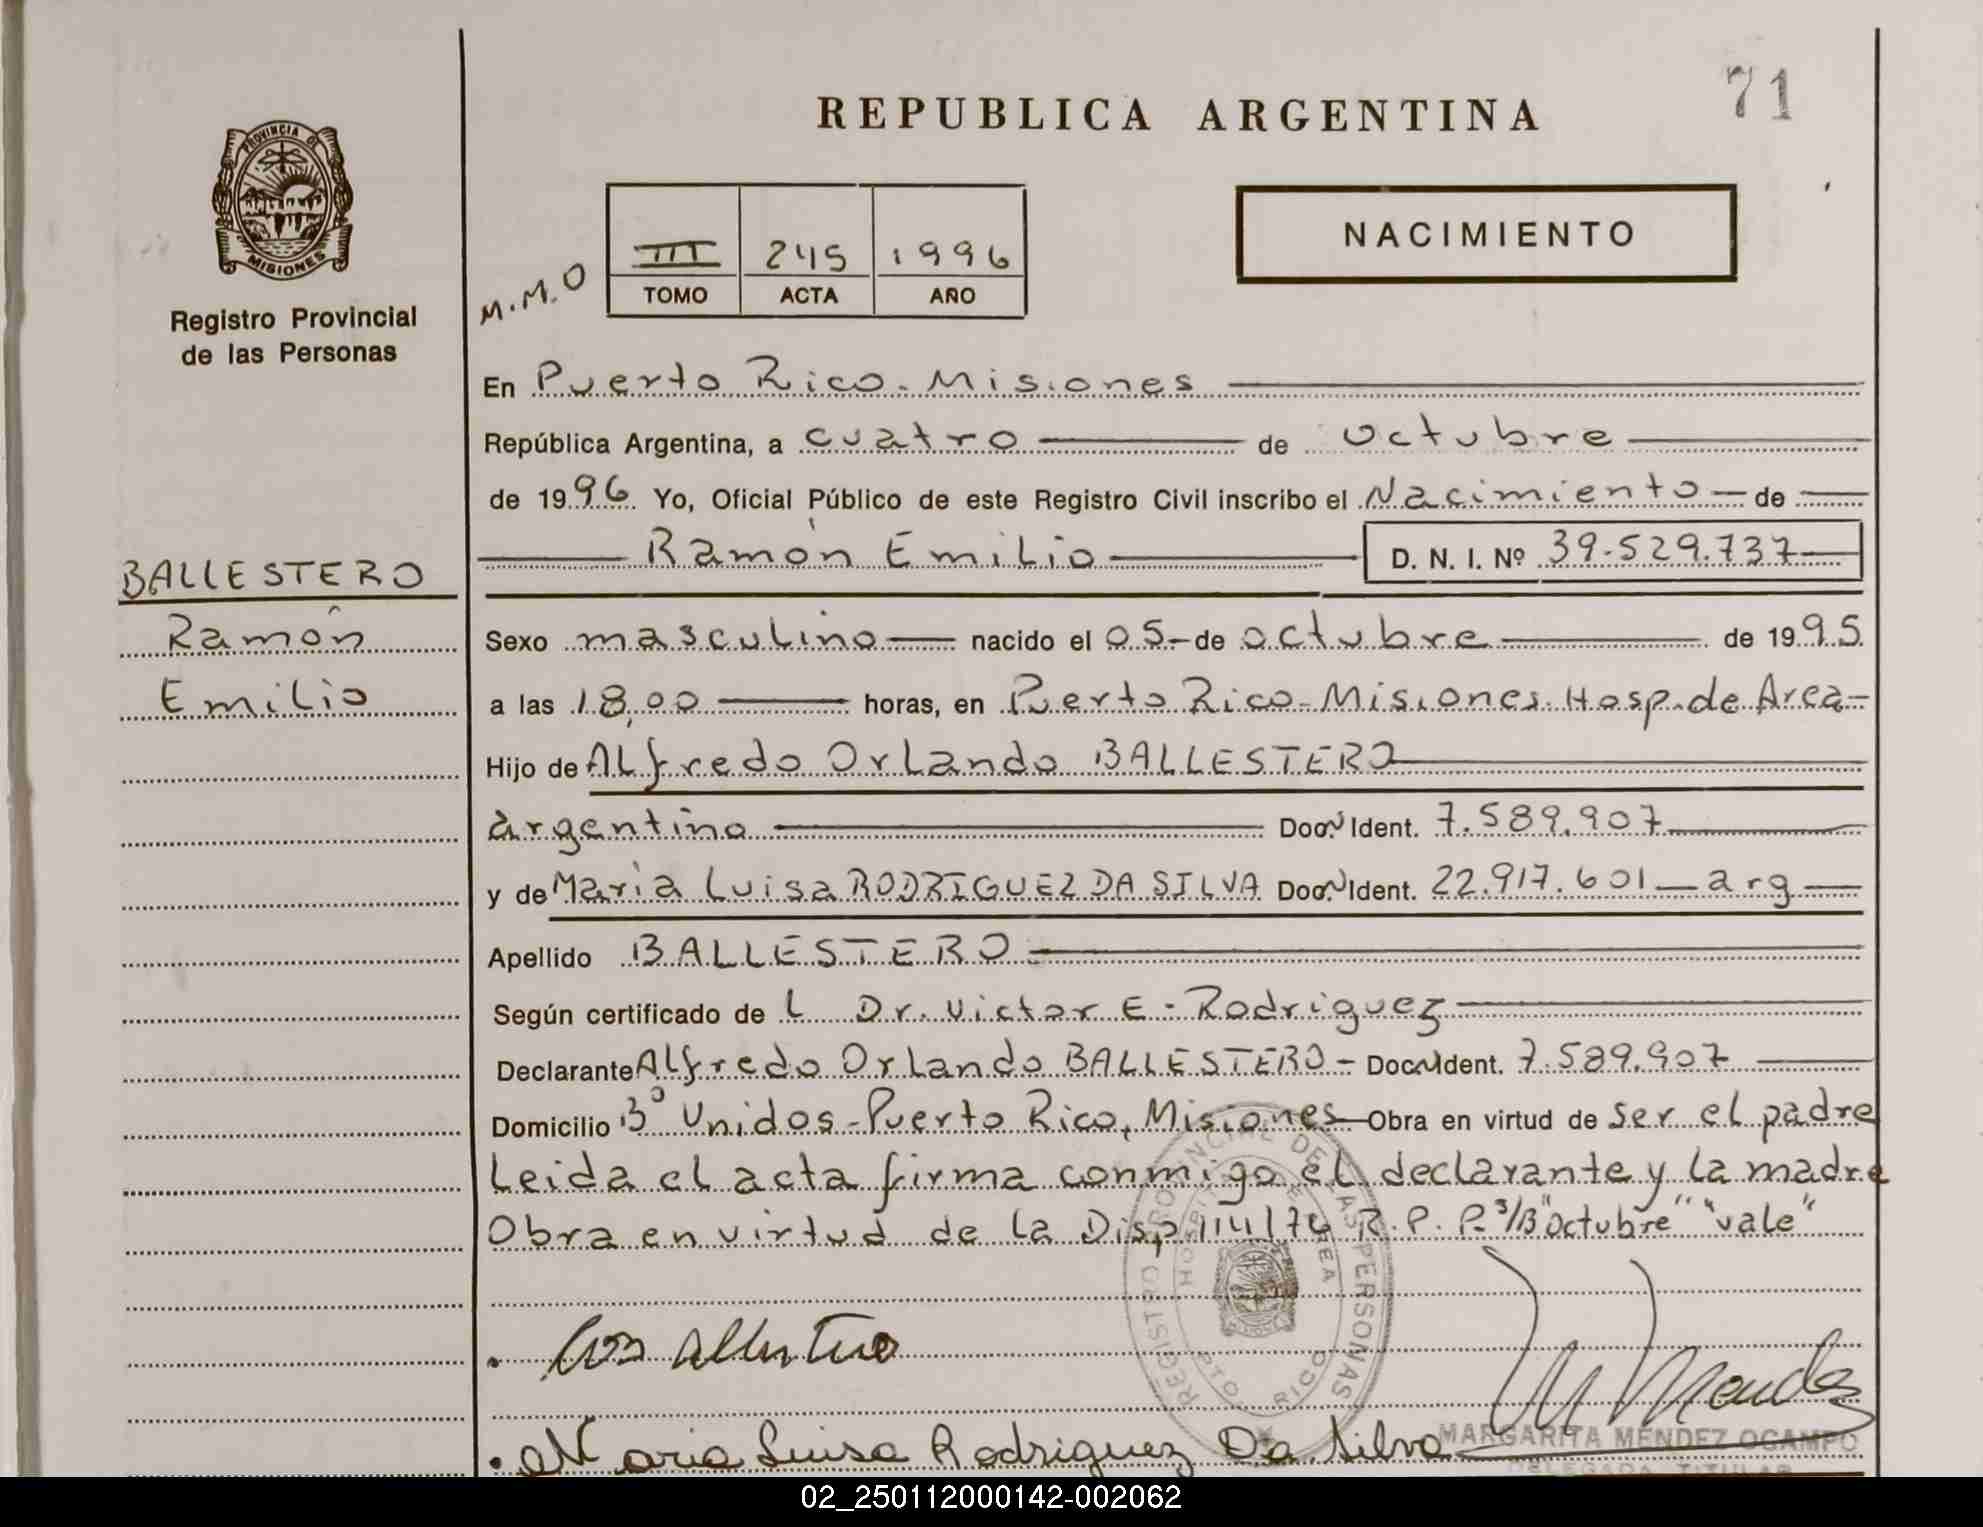 71
REPUBLICA ARGENTINA
PROVINCIA DE
MISIONES
Registro Provincial
de las Personas
NACIMIENTO
M.M.O
III 245 1996
TOMO ACTA AÑO
En Puerto Rico - Misiones
República Argentina, a cuatro de octubre
de 1996 Yo, Oficial Público de este Registro Civil inscribo el Nacimiento de
Ramón Emilio D. N. I. Nº 39.529.737
BALLESTERO
Ramón
Emilio
Sexo masculino nacido el 05 de octubre de 1995
a las 18,00 horas, en Puerto Rico - Misiones. Hosp. de Area
Hijo de Alfredo Orlando BALLESTERO
argentino Doc. Ident. 7.589.907
y de María Luisa RODRIGUEZ DA SILVA Doc. Ident. 22.917.601 arg
Apellido BALLESTERO
Según certificado de L Dr. Victor E. Rodriguez
Declarante Alfredo Orlando BALLESTERO - Doc. Ident. 7.589.907
Domicilio Bº Unidos - Puerto Rico, Misiones Obra en virtud de ser el padre
Leida el acta firma conmigo el declarante y la madre
Obra en virtud de la Disp 114/74 R.P.P. S/B "octubre" "vale"
REGISTRO PROVINCIAL DE LAS PERSONAS
HOSPITAL DE AREA
PTO. RICO
M Mendez
Maria Luisa Rodriguez Da Silva
MARGARITA MENDEZ OCAMPO
DELEGADA TITULAR
02_250112000142-002062